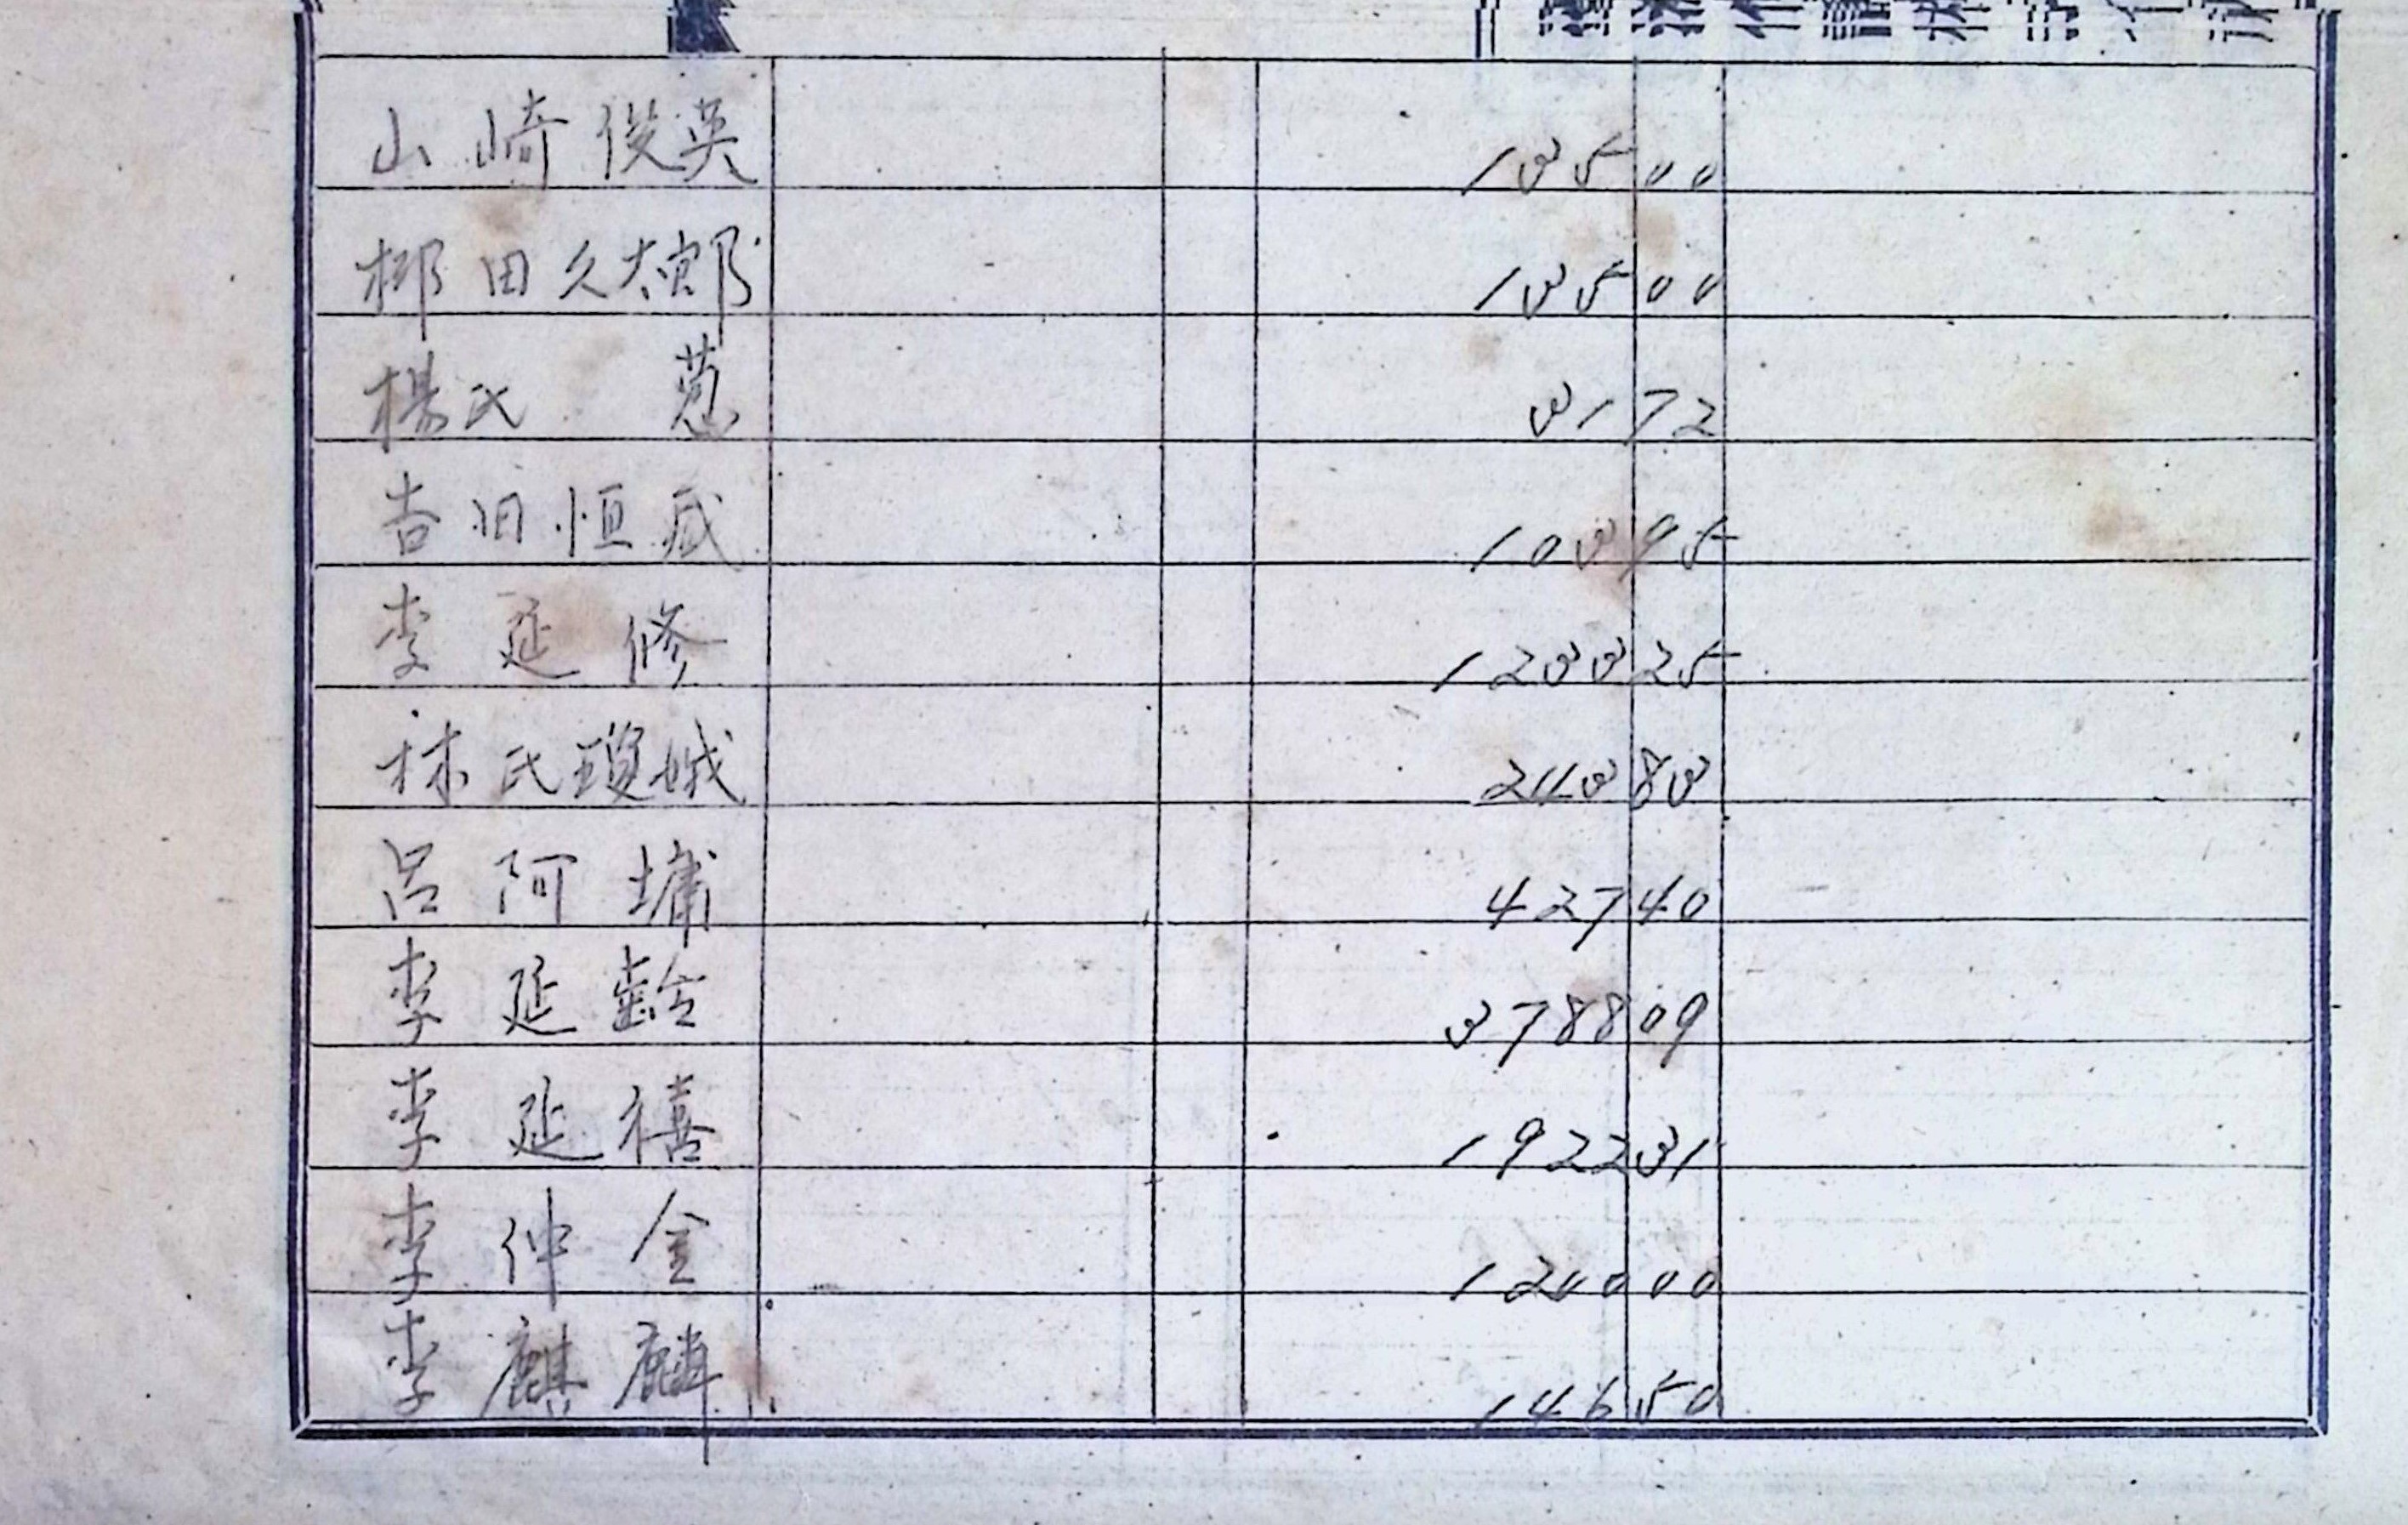 山崎俊英 135 00
柳田久太郎 135 00
楊氏 葱 31 72
吉田恒成 103 95
李延修 1233 25
林氏瓊娥 243 83
呂阿墉 427 40
李延齡 3788 09
李延禧 1922 31
李仲金 1200 00
李麒麟 146 50